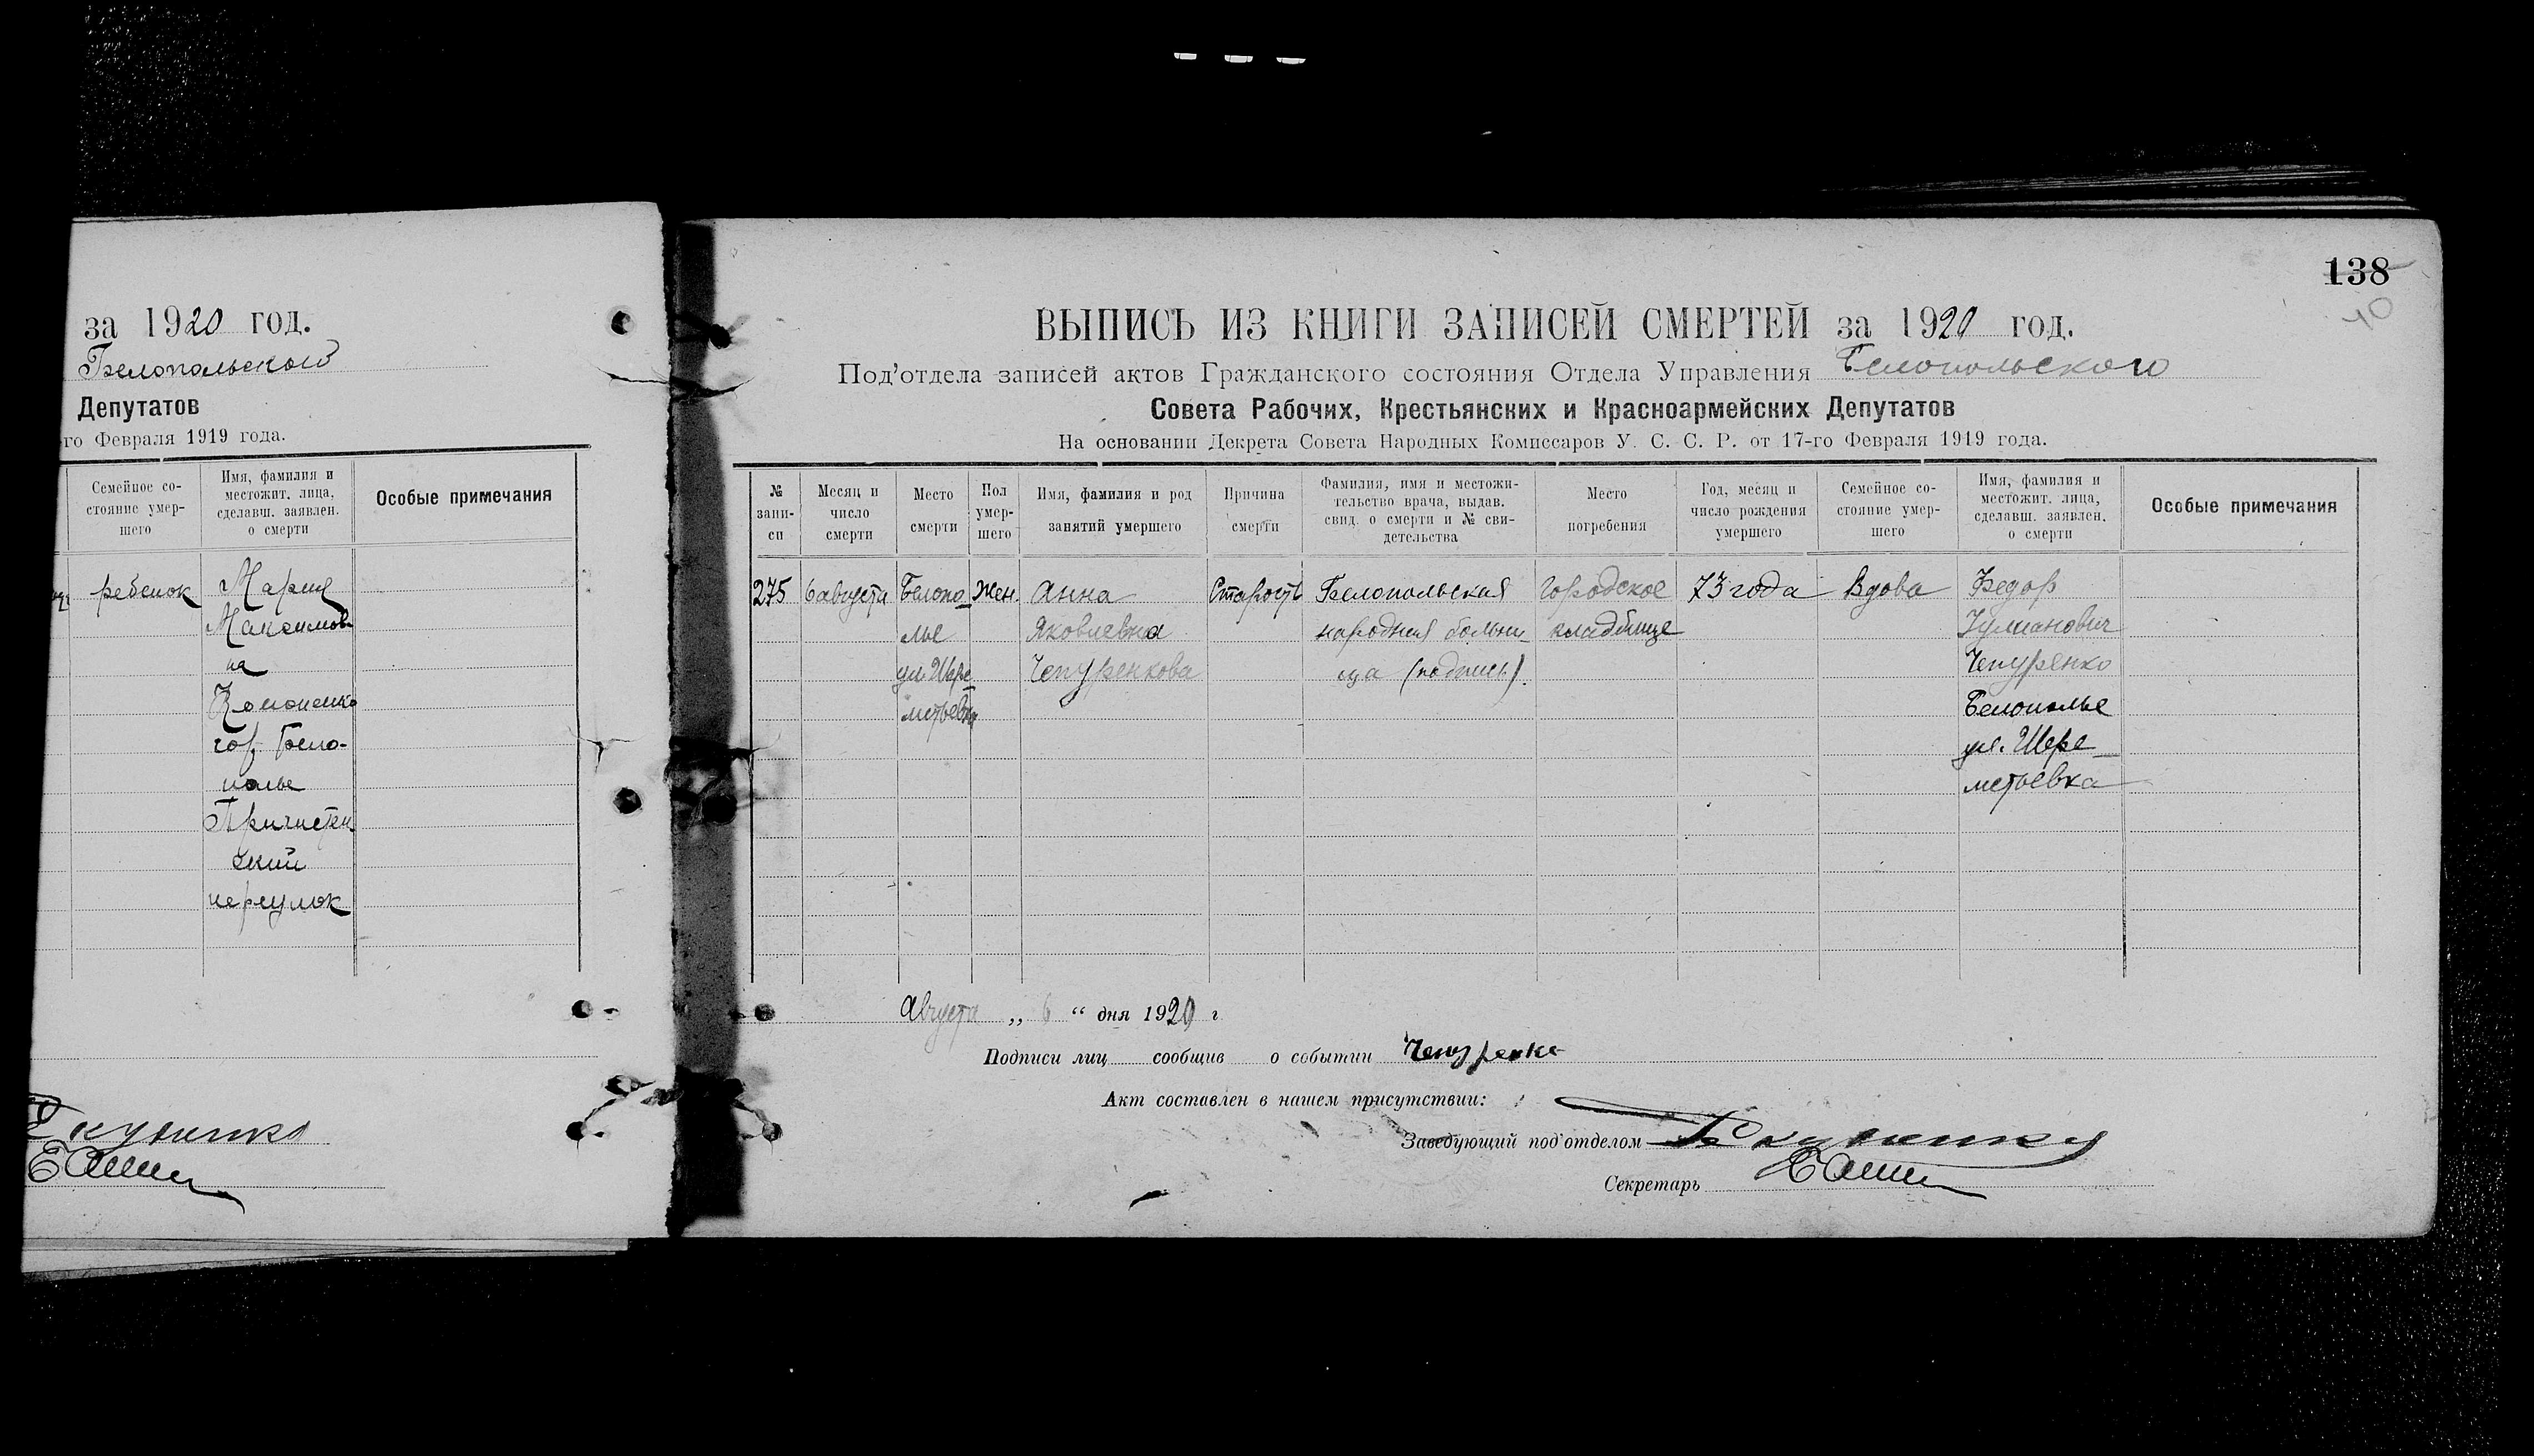 за 1920 год.
Белопольский
Депутатов
го Февраля 1919 года.
Семейное со-
стояние умер-
шего
Имя, фамилия и
местожит. лица,
сделавш. заявлен.
о смерти
Особые примечания
ребенок
Мария
Максимов
на
гор. Бело-
полье
Причистен
ский
переулок
138
10
ВЫПИСЬ ИЗ КНИГИ ЗАПИСЕЙ СМЕРТЕЙ за 1920 год.
Под'отдела записей актов Гражданского состояния Отдела Управления Белопольского
Совета Рабочих, Крестьянских и Красноармейских Депутатов
На основании Декрета Совета Народных Комиссаров У. С. С. Р. от 17-го Февраля 1919 года.
№
запи-
си
Месяц и
число
смерти
Место
смерти
Пол
умер-
шего
Имя, фамилия и род
занятий умершего
Причина
смерти
Фамилия, имя и местожи-
тельство врача, выдав.
свид. о смерти и № сви-
детельства
Место
погребения
Год, месяц и
число рождения
умершего
Семейное со-
стояние умер-
шего
Имя, фамилия и
местожит. лица,
сделавш. заявлен.
о смерти
Особые примечания
275
6 августа
Белопо
лье
ул. Шере
метьевка
Жен.
Анна
Яковлевна
Чепуренкова
Старость
Белопольская
народная больни
ца (подпись).
Городское
кладбище
73 года
Вдова
Федор
Иулианович
Чепуренко
Белополье
ул. Шере
метьевка
Августа „ 6 “ дня 1920 г
Подписи лиц сообщив о событии Чепуренко
Акт составлен в нашем присутствии:
Заведующий под'отделом
Секретарь